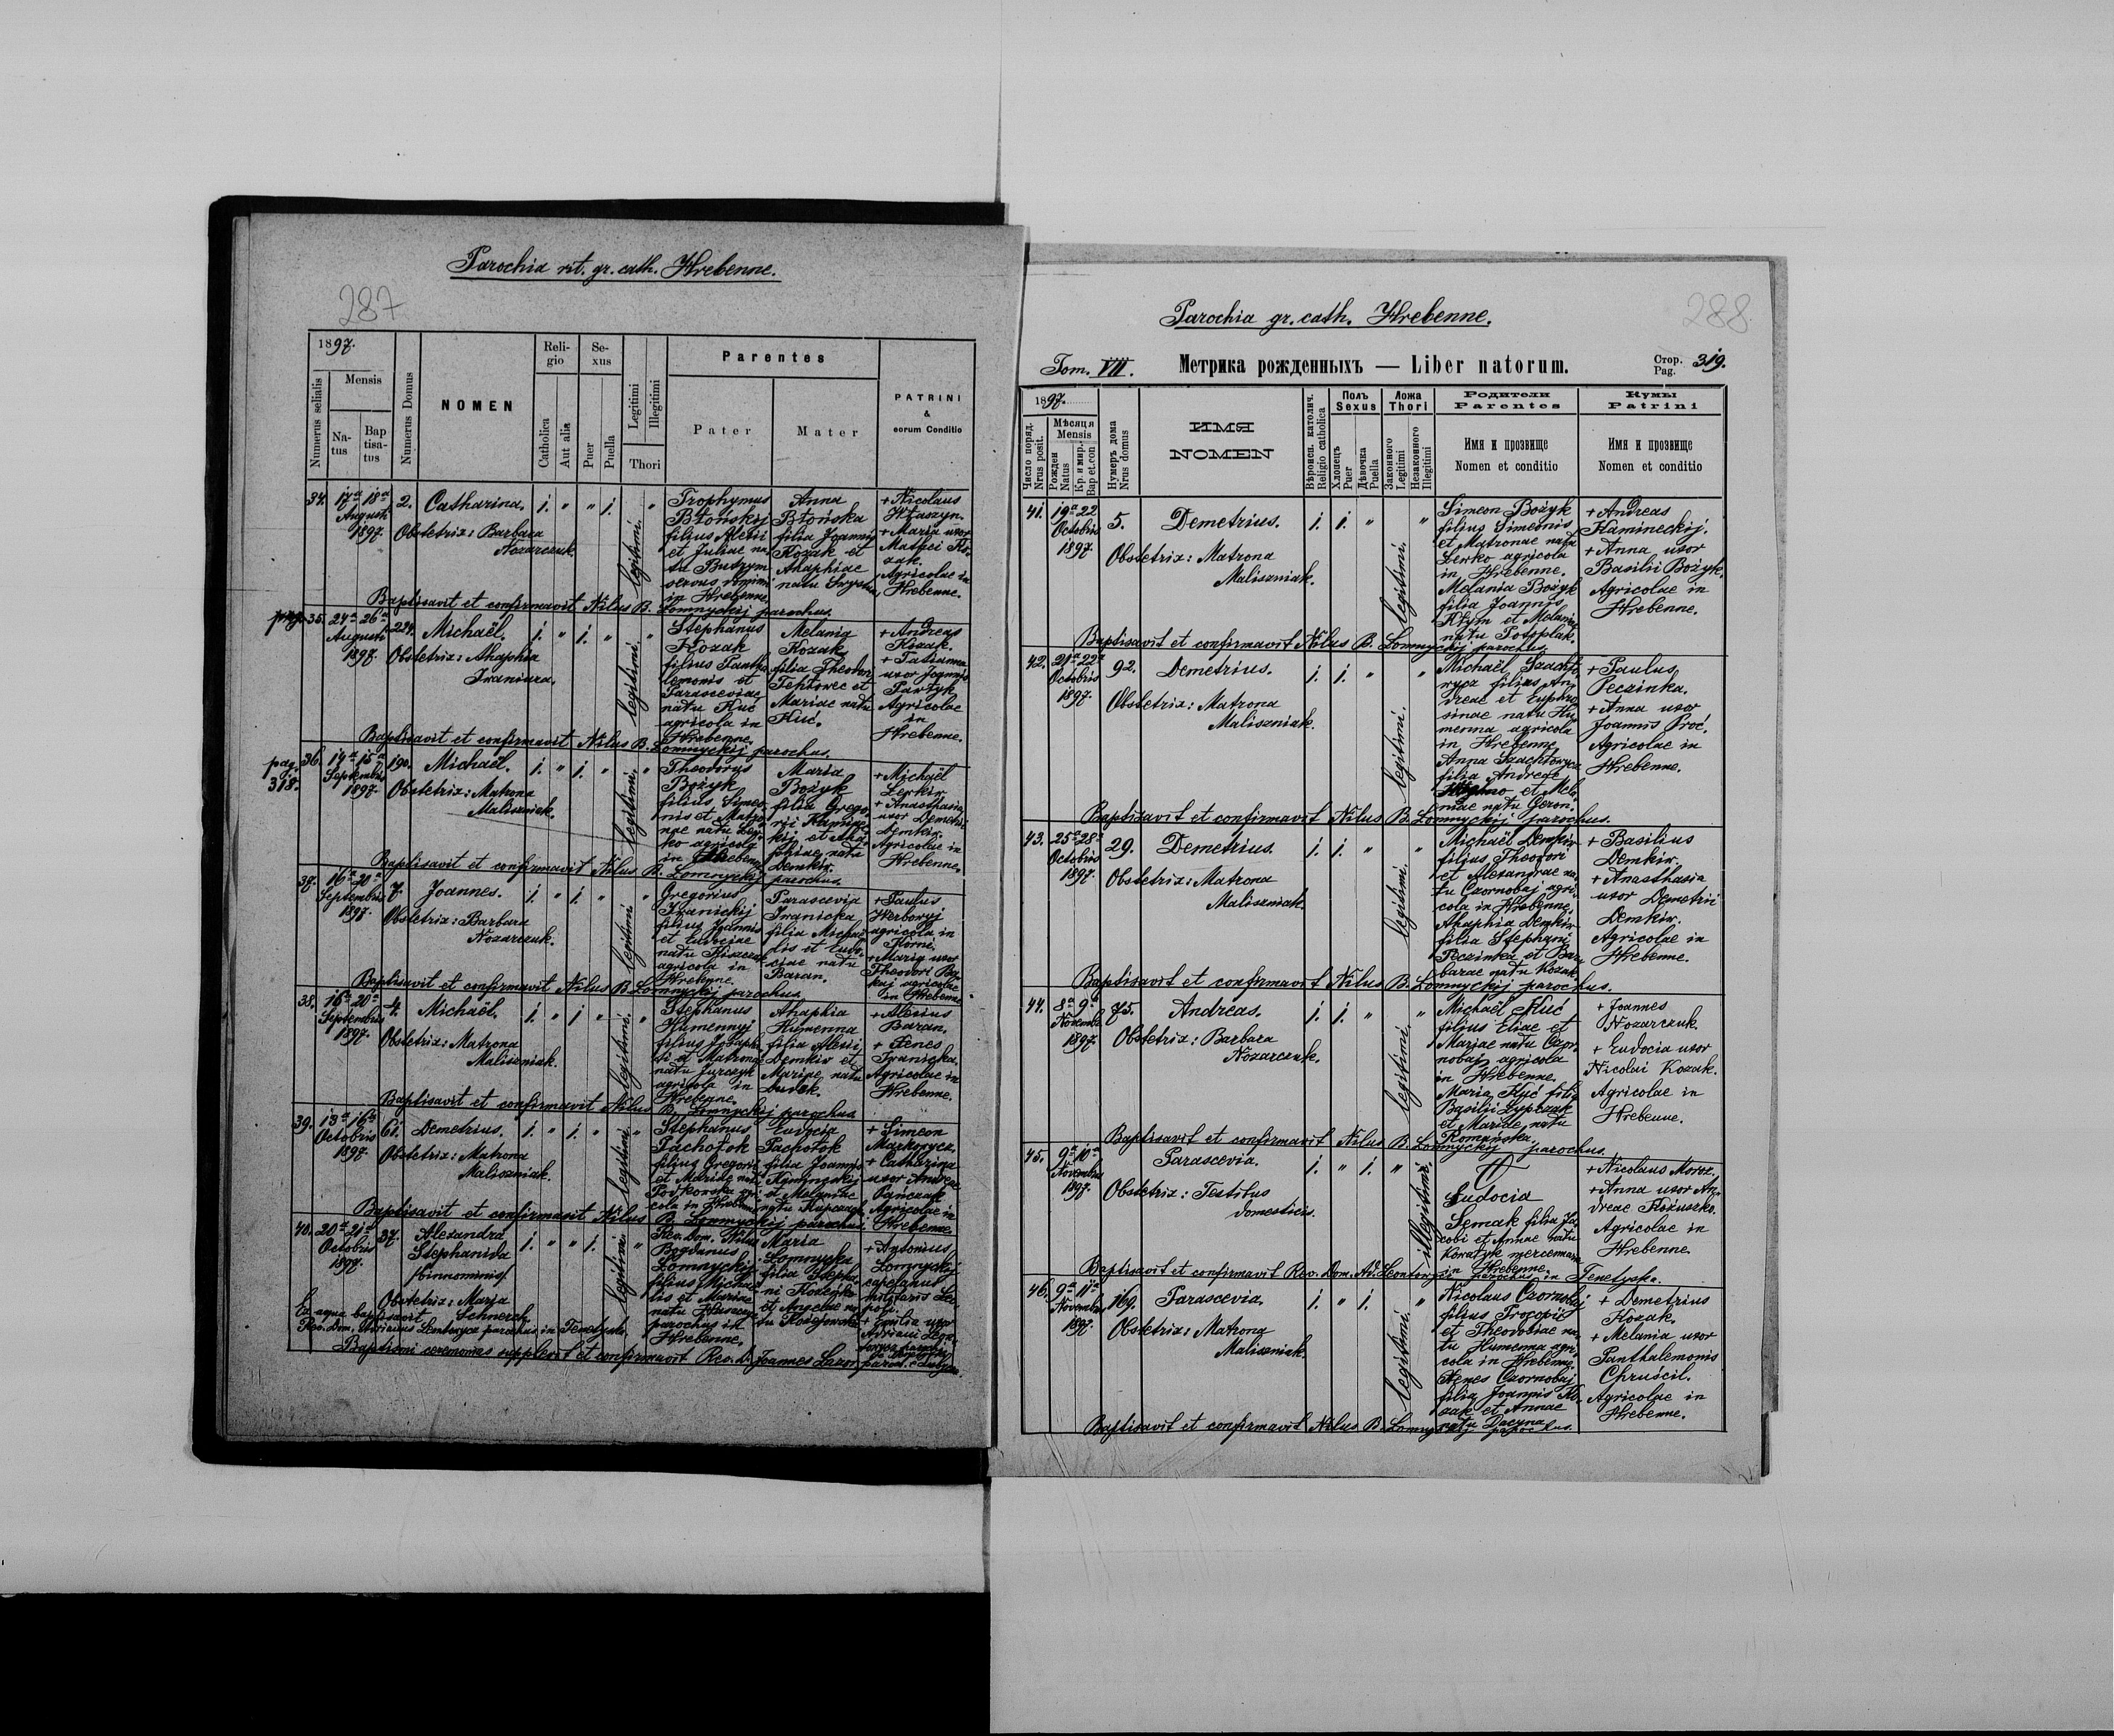 Parochia rit. gr. cath. Hrebenne.
287
1897.
Numerus serialis
Mensis
Na-
tus
Bap
tisa-
tus
Numerus Domus
NOMEN
Reli-
gio
Catholica
Aut alia
Se-
xus
Puer
Puella
Legitimi
Illegitimi
Thori
Parentes
Pater
Mater
PATRINI
&
eorum Conditio
34. 17a 18a
Augusti
1897.
2. Catharina.
Obstetrix: Barbara
Nozarczuk
1. " " 1.
legitimi.
"
Trophymus
Błońskij
filius Alexii
et Julianae na-
tu Butrym
in Hrebenne
Anna
Błońska
filia Joannis
Kozak et
Ahaphiae
+ Nicolaus
+ Maria uxor
Mathei Ko-
zak.
Agricolae in
Hrebenne.
Baptisavit et confirmavit Nilus B. Łomnyckij parochus.
35. 24a 26a
Augusti
1897.
224. Michaël.
Obstetrix: Ahaphia
1. " 1. "
legitimi.
"
Stephanus
Kozak
filius Panth-
lemonis et
Parasceviae
natu Huć
agricola in
Hrebenne.
Melania
Kozak
filia Theodori
Mariae natu
Huć.
+ Andreas
Kozak.
+ Tatianna
uxor Joannis
Agricolae
in
Hrebenne.
Baptisavit et confirmavit Nilus B. Łomnyckij parochus.
pag.
318.
36. 14a 15a
Septembris
1897.
190. Michaël.
Obstetrix: Matrona
Maliszniak.
1. " 1. "
legitimi.
"
Theodorus
Bożyk
filius Simeo-
nis et Matro-
nae natu Ler-
ko agricola
in Hrebenne
Maria
Bożyk
filia Grego-
rii
kij et
natu
Demkiw.
+ Michaël
+ Anasthasia
uxor Demetrii
Demkiw.
Agricolae in
Hrebenne.
Baptisavit et confirmavit Nilus B. Łomnyckij parochus.
37. 16a 20a
Septembris
1897.
7. Joannes.
Obstetrix: Barbara
Nozarczuk.
1. " 1. "
legitimi
"
Gregorius
Iwanickij
filius Joannis
et Eudociae
natu
agricola in
Hrebenne.
Parascevia
Iwanicka
filia Michaë-
lis et Eudo-
ciae natu
Baran.
+ Paulus
Werboryj
agricola in
Kornie.
+ Maria uxor
Theodori
agricolae
in Hrebenne
Baptisavit et confirmavit Nilus B. Łomnyckij parochus
38. 16a 20a
Septembris
1897.
4. Michaël.
Obstetrix: Matrona
Maliszniak.
1. " 1 "
legitimi.
"
Stephanus
Humennyj
filius Josaphi-
ti et Matronae
natu Jurczyk
agricola in
Hrebenne.
Ahaphia
Humenna
filia Alexii
Demkiw et
Mariae natu
Dudek.
+ Alexius
Baran.
+ Xenes
Iwanicka.
Agricolae in
Hrebenne.
Baptisavit et confirmavit Nilus B. Łomnyckij parochus
39. 13a 16a
Octobris
1897.
61. Demetrius.
Obstetrix: Matrona
Maliszniak.
1. " 1. "
legitimi.
"
Stephanus
Pachołok
filius Gregorii
et Mariae natu
agri-
cola in Hrebenne
Eudocia
Pachołok
filia Joannis
et Melaniae
natu
+ Simeon
+ Catharina
uxor Andreae
Agricolae in
Hrebenne
Baptisavit et confirmavit Nilus B. Łomnyckij parochus.
40. 20a 21a
Octobris
1897.
37. Alexandra
Stephanida
/binnominis/
Obstetrix: Maria
Schnerch.
1. " " 1.
legitimi.
"
Rev. Dom. Nilus
Bogdanus
Łomnyckij
filius Michaë-
lis et Mariae
natu
parochus in
Hrebenne.
Maria
Łomnycka
filia Stepha-
ni
et Angelae na-
tu
+ Antonius
Łomnyckij
capelanus
militaris Leo-
poli.
+ Emilia uxor
Adriani
Ex aqua baptisavit
Rev. Dom. Adrianus Leontowycz parochus in Teniatyska.
Baptismi ceremonias supplevit et confirmavit Rev. D. Joannes Lazor
288
Parochia gr. cath. Hrebenne.
Tom. VII. Метрика рожденныхъ — Liber natorum.
Стор.
Pag. 319.
1897.
Число поряд.
Nrus posit.
Мѣсяця
Mensis
Рожден
Natus
Кр. и мир.
Bap et.con
Нумеръ дома
Nrus domus
ИМЯ
NOMEN
Вѣроисп. католич.
Religio catholica
Полъ
Sexus
Хлопець
Puer
Дѣвочка
Puella
Ложа
Thori
Законного
Legitimi
Незаконного
Illegitimi
Родители
Parentes
Имя и прозвище
Nomen et conditio
Кумы
Patrini
Имя и прозвище
Nomen et conditio
41. 19a 22
Octobris
1897.
5. Demetrius.
Obstetrix: Matrona
Maliszniak.
1. 1. "
legitimi.
"
Simeon Bożyk
filius Simeonis
et Matronae natu
Lerko agricola
in Hrebenne.
Melania Bożyk
filia Joannis
Kłym et Melaniae
natu Potoplak.
+ Andreas
Kamineckij.
+ Anna uxor
Basilii Bożyk.
Agricolae in
Hrebenne.
Baptisavit et confirmavit Nilus B. Łomnyckij parochus
42. 21a 22a
Octobris
1897.
92. Demetrius.
Obstetrix: Matrona
Maliszniak.
1. 1. "
legitimi.
"
Michaël Szachto-
rycz filius An-
dreae et Euphro-
sinae natu Hu-
menna agricola
in Hrebenne
Anna Szachtorycz
filia Andreae
et Mela-
niae natu Geron.
+ Paulus
Peczinka.
+ Anna uxor
Joannis Proć.
Agricolae in
Hrebenne.
Baptisavit et confirmavit Nilus B. Łomnyckij parochus.
43. 25a 28a
Octobris
1897.
29. Demetrius.
Obstetrix: Matrona
Maliszniak.
1. 1. "
legitimi.
"
Michaël Demkiw
filius Theodori
et Alexandrae na-
tu Czornobaj agri-
cola in Hrebenne.
Ahaphia Demkiw
filia Stephani
Peczinka et Bar-
barae natu Kozak
+ Basilius
Demkiw.
+ Anasthasia
uxor Demetrii
Demkiw.
Agricolae in
Hrebenne.
Baptisavit et confirmavit Nilus B. Łomnyckij parochus.
44. 8a 9a
Novemb.
1897.
75. Andreas.
Obstetrix: Barbara
Nozarczuk.
1. 1. "
legitimi.
"
Michaël Huć
filius Eliae et
Mariae natu Czor-
nobaj agricola
in Hrebenne.
Maria Huć filia
Basilii Łypczak
et Mariae natu
Romańska.
+ Joannes
Nozarczuk.
+ Eudocia uxor
Nicolai Kozak.
Agricolae in
Hrebenne.
Baptisavit et confirmavit Nilus B. Łomnyckij parochus.
45. 9a 10a
Novembris
1897.
Parascevia.
Obstetrix: Testibus
domesticis.
1. " 1. "
illegitimi.
Eudocia
Semak filia Ja-
cobi et Annae natu
Kowalyk mercennaria
in Hrebenne.
+ Nicolaus Moroz.
+ Anna uxor An-
dreae Kożuszko.
Agricolae in
Hrebenne.
Baptisavit et confirmavit Rev. Dom. Ad. Leontowycz parochus in Tenetyska.
46. 9a 11a
Novembris
1897.
169. Parascevia.
Obstetrix: Matrona
Maliszniak.
1. " 1.
legitimi.
"
Nicolaus Czornobaj
filius Procopii
et Theodosiae na-
tu Humenna agri-
cola in Hrebenne.
Xenes Czornobaj
filia Joannis Ko-
zak et Annae
natu Dacyna
+ Demetrius
Kozak.
+ Melania uxor
Panthalemonis
Chruścil.
Agricolae in
Hrebenne.
Baptisavit et confirmavit Nilus B. Łomnyckij parochus.